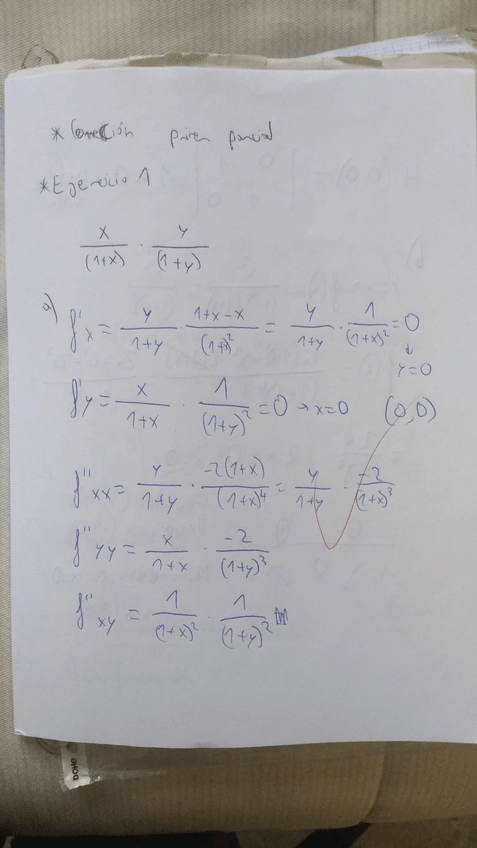 * Corrección primer parcial
* Ejercicio 1
x/(1+x) · y/(1+y)
a) f'x = y/(1+y) · (1+x-x)/(1+x)² = y/(1+y) · 1/(1+x)² = 0
↓
y=0
f'y = x/(1+x) · 1/(1+y)² = 0 → x=0 (0,0)
f''xx = y/(1+y) · -2(1+x)/(1+x)⁴ = y/(1+y) · -2/(1+x)³
f''yy = x/(1+x) · -2/(1+y)³
f''xy = 1/(1+x)² · 1/(1+y)²